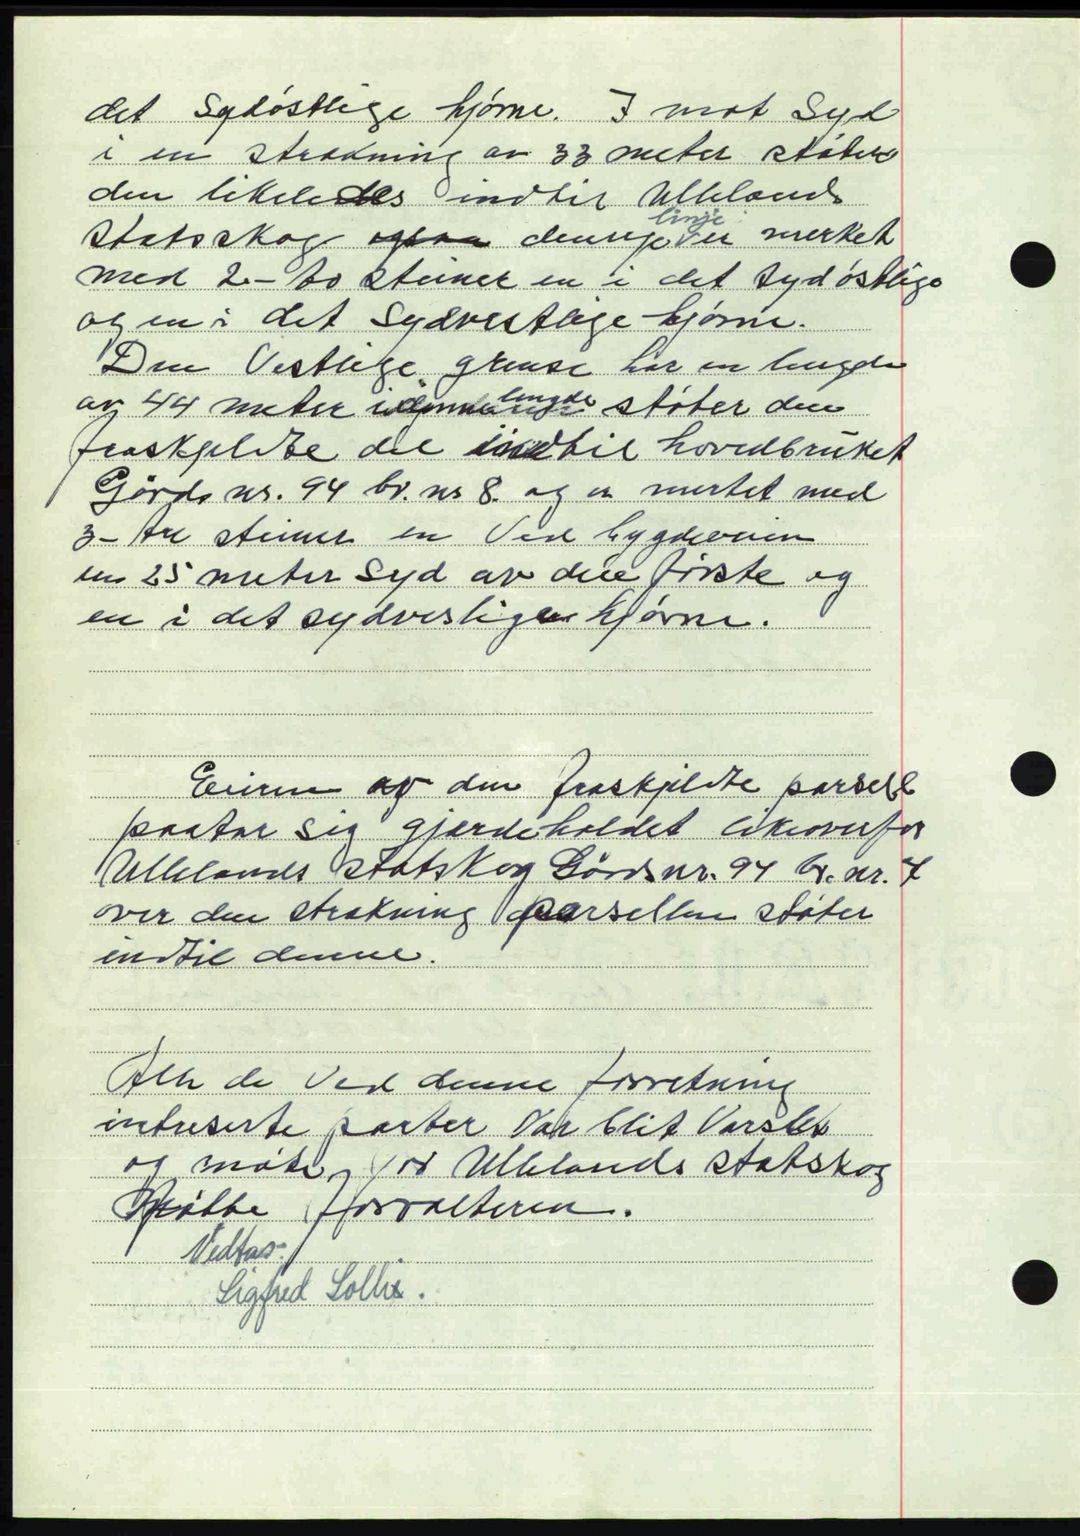 det Sydöstlige hjörne. I mot Syd
i en strekning av 33 meter stöter
den likeledes indtil Ullelands
Statsskog denne linje er merket
med 2 – to steiner en i det sydöstlige
og en i det Sydvestlige hjörne.
Den Vestlige grense har en lengde
av 44 meter i lengde stöter den
fraskjeldte del indtil hovedbruket
Gårds nr. 94 br. nr 8. og er merket med
3 – tre steiner en Ved bygdeveien
en 25 meter Syd av den förste og
en i det sydvestligen hjörne.
Eieren av den fraskjeldte parsell
paatar sig gjerdeholdet likeoverfor
Ullelands Statskog Gårdsnr. 94 br. nr. 7
over den strekning parsellen stöter
indtil denne.
Alle de Ved denne forretning
intreserte parter Var blit Varslet
og möte, for Ullelands statskog
mötte forvalteren.
Vedtas:
Sigfred Sollie.